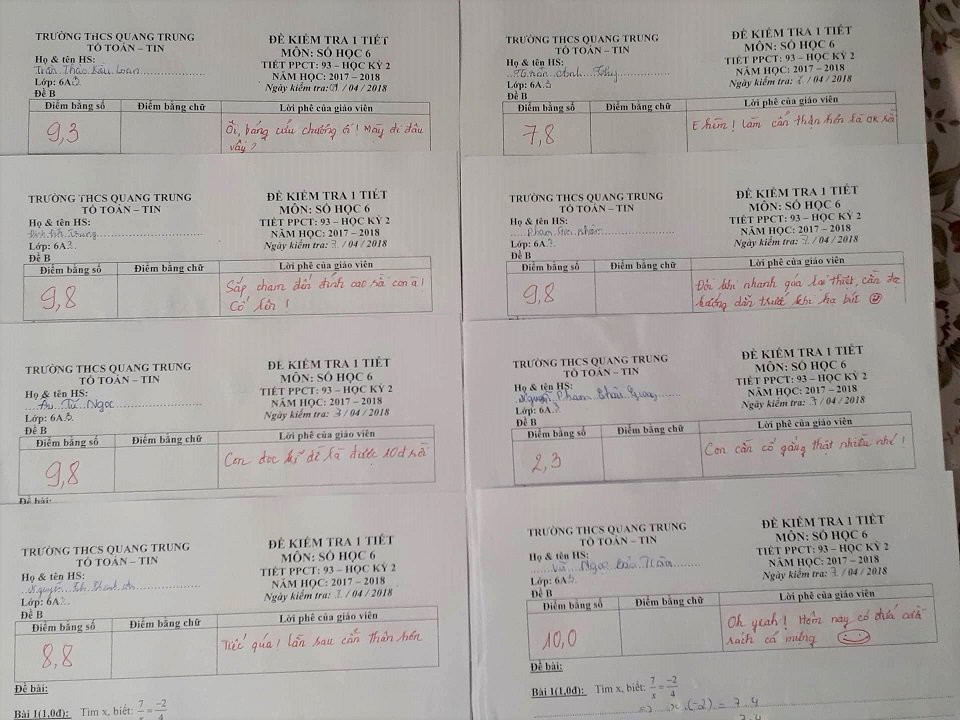 TRƯỜNG THCS QUANG TRUNG
TỔ TOÁN – TIN
Họ & tên HS:
Trần Thảo Loan
Lớp: 6A3
Đề B
ĐỀ KIỂM TRA 1 TIẾT
MÔN: SỐ HỌC 6
TIẾT PPCT: 93 – HỌC KỲ 2
NĂM HỌC: 2017 – 2018
Ngày kiểm tra: / 04 / 2018
Điểm bằng số Điểm bằng chữ Lời phê của giáo viên
9,3
Ôi, bảng cửu chương ơi! Mày đi đâu
vậy?
TRƯỜNG THCS QUANG TRUNG
TỔ TOÁN – TIN
Họ & tên HS:
Anh Thy
Lớp: 6A3
Đề B
ĐỀ KIỂM TRA 1 TIẾT
MÔN: SỐ HỌC 6
TIẾT PPCT: 93 – HỌC KỲ 2
NĂM HỌC: 2017 – 2018
Ngày kiểm tra: 7 / 04 / 2018
Điểm bằng số Điểm bằng chữ Lời phê của giáo viên
7,8
E hèm! Làm cẩn thận hơn là ok rồi
TRƯỜNG THCS QUANG TRUNG
TỔ TOÁN – TIN
Họ & tên HS:
Trung
Lớp: 6A3
Đề B
ĐỀ KIỂM TRA 1 TIẾT
MÔN: SỐ HỌC 6
TIẾT PPCT: 93 – HỌC KỲ 2
NĂM HỌC: 2017 – 2018
Ngày kiểm tra: 7 / 04 / 2018
Điểm bằng số Điểm bằng chữ Lời phê của giáo viên
9,8
Sắp chạm đến đỉnh cao rồi con ạ!
Cố lên!
TRƯỜNG THCS QUANG TRUNG
TỔ TOÁN – TIN
Họ & tên HS:
Phạm
Lớp: 6A3
Đề B
ĐỀ KIỂM TRA 1 TIẾT
MÔN: SỐ HỌC 6
TIẾT PPCT: 93 – HỌC KỲ 2
NĂM HỌC: 2017 – 2018
Ngày kiểm tra: 7 / 04 / 2018
Điểm bằng số Điểm bằng chữ Lời phê của giáo viên
9,8
Đôi khi nhanh quá lại thiệt, cần đọc
hướng dẫn trước khi hạ bút
TRƯỜNG THCS QUANG TRUNG
TỔ TOÁN – TIN
Họ & tên HS:
Tú Ngọc
Lớp: 6A3
Đề B
ĐỀ KIỂM TRA 1 TIẾT
MÔN: SỐ HỌC 6
TIẾT PPCT: 93 – HỌC KỲ 2
NĂM HỌC: 2017 – 2018
Ngày kiểm tra: 7 / 04 / 2018
Điểm bằng số Điểm bằng chữ Lời phê của giáo viên
9,8
Con đọc kĩ đề là được 10đ rồi
Đề bài:
TRƯỜNG THCS QUANG TRUNG
TỔ TOÁN – TIN
Họ & tên HS:
Nguyễn Phạm Giang
Lớp: 6A3
Đề B
ĐỀ KIỂM TRA 1 TIẾT
MÔN: SỐ HỌC 6
TIẾT PPCT: 93 – HỌC KỲ 2
NĂM HỌC: 2017 – 2018
Ngày kiểm tra: 7 / 04 / 2018
Điểm bằng số Điểm bằng chữ Lời phê của giáo viên
2,3
Con cần cố gắng thật nhiều nhé!
TRƯỜNG THCS QUANG TRUNG
TỔ TOÁN – TIN
Họ & tên HS:
Nguyễn
Lớp: 6A3
Đề B
ĐỀ KIỂM TRA 1 TIẾT
MÔN: SỐ HỌC 6
TIẾT PPCT: 93 – HỌC KỲ 2
NĂM HỌC: 2017 – 2018
Ngày kiểm tra: 7 / 04 / 2018
Điểm bằng số Điểm bằng chữ Lời phê của giáo viên
8,8
Tiếc quá! Lần sau cẩn thận hơn
Đề bài:
Bài 1(1,0đ): Tìm x, biết: 7/x = -2/4
TRƯỜNG THCS QUANG TRUNG
TỔ TOÁN – TIN
Họ & tên HS:
Vũ Ngọc Bảo Trân
Lớp: 6A3
Đề B
ĐỀ KIỂM TRA 1 TIẾT
MÔN: SỐ HỌC 6
TIẾT PPCT: 93 – HỌC KỲ 2
NĂM HỌC: 2017 – 2018
Ngày kiểm tra: 7 / 04 / 2018
Điểm bằng số Điểm bằng chữ Lời phê của giáo viên
10,0
Oh yeah! Hôm nay có đứa cười
rách cả miệng
Đề bài:
Bài 1(1,0đ): Tìm x, biết: 7/x = -2/4
=> x.(-2) = 7.4
7.4